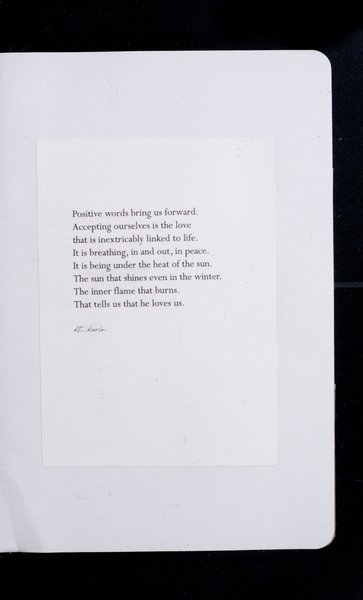 Positive words bring us forward.
Accepting ourselves is the love
that is inextricably linked to life.
It is breathing, in and out, in peace.
It is being under the heat of the sun.
The sun that shines even in the winter.
The inner flame that burns.
That tells us that he loves us.